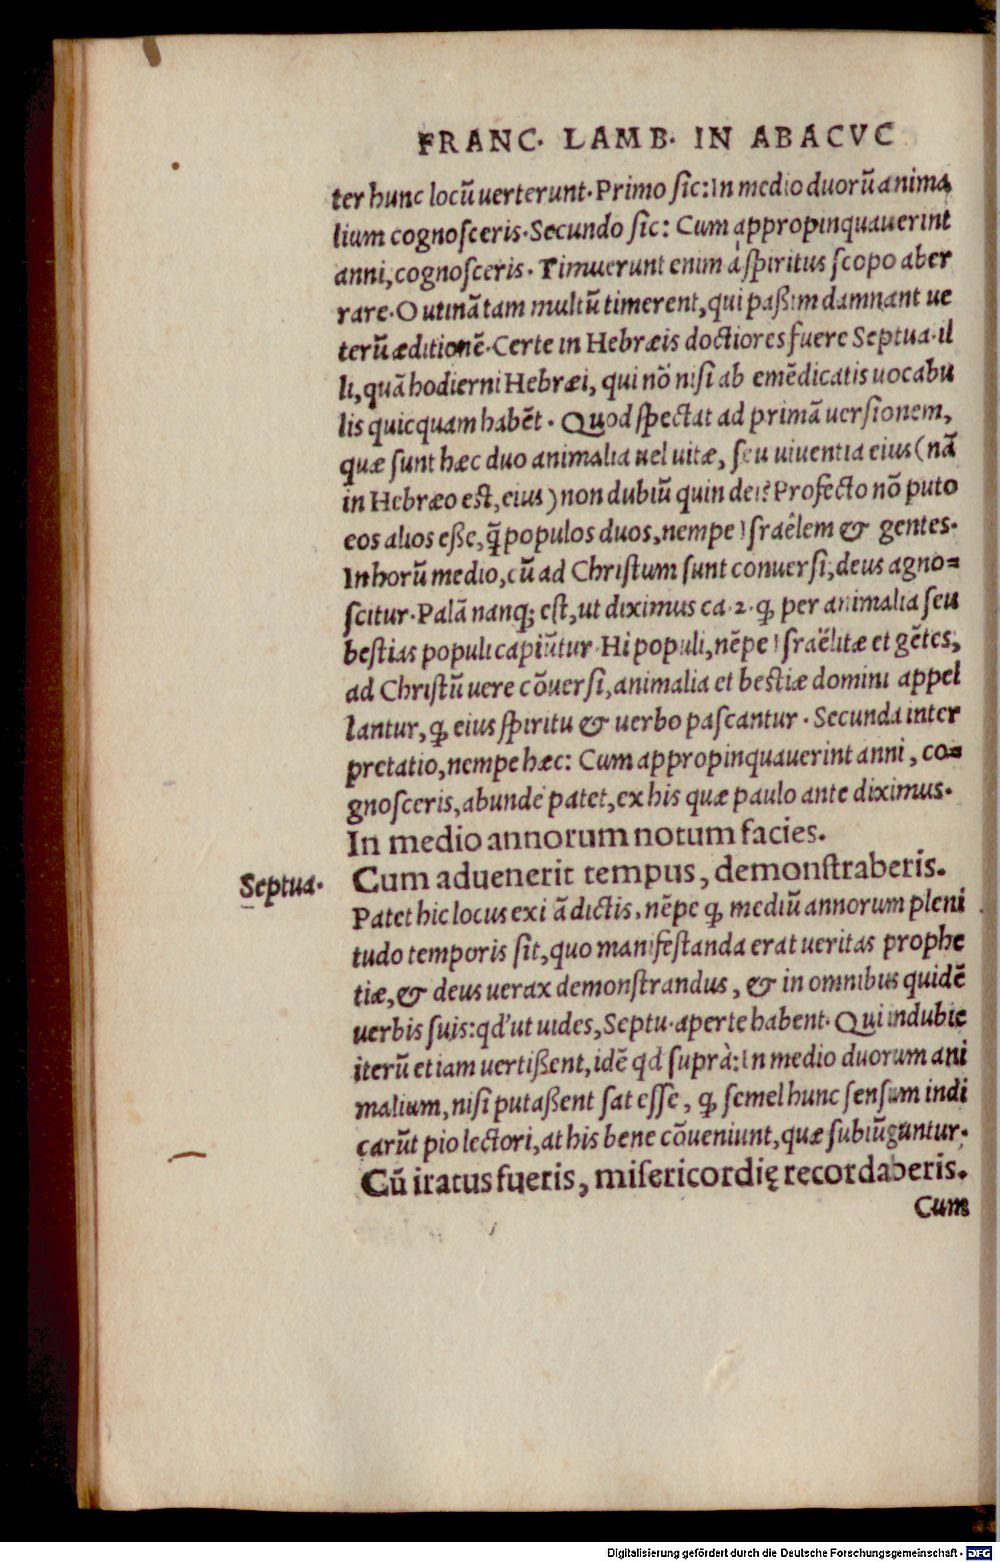 FRANC. LAMB. IN ABACVC
ter hunc locũ uerterunt. Primo ſic: In medio duorũ anima
lium cognoſceris. Secundo ſic: Cum appropinquauerint
anni, cognoſceris. Timuerunt enim à ſpiritus ſcopo aber
rare. O utinã tam multũ timerent, qui paßim damnant ue
terũ æditionẽ. Certe in Hebræis doctiores fuere Septua. il
li, quã hodierni Hebræi, qui nõ niſi ab emẽdicatis uocabu
lis quicquam habẽt. Quod ſpectat ad primã uerſionem,
quæ ſunt hæc duo animalia uel uitæ, ſeu uiuentia eius (nã
in Hebræo eſt, eius) non dubiũ quin dei? Profecto nõ puto
eos alios eße, q̃ populos duos, nempe Iſraêlem & gentes.
In horũ medio, cũ ad Chriſtum ſunt conuerſi, deus agno-
ſcitur. Palã nanq; eſt, ut diximus ca. 2. ꝙ per animalia ſeu
beſtias populi capiũtur. Hi populi, nẽpe Iſraëlitæ et gẽtes,
ad Chriſtũ uere cõuerſi, animalia et beſtiæ domini appel
lantur, ꝙ eius ſpiritu & uerbo paſcantur. Secunda inter
pretatio, nempe hæc: Cum appropinquauerint anni, co-
gnoſceris, abunde patet, ex his quæ paulo ante diximus.
In medio annorum notum facies.
Septua. Cum aduenerit tempus, demonſtraberis.
Patet hic locus exi ã dictis, nẽpe ꝙ mediũ annorum pleni
tudo temporis ſit, quo manifeſtanda erat ueritas prophe
tiæ, & deus uerax demonſtrandus, & in omnibus quidẽ
uerbis ſuis: qd' ut uides, Septu. aperte habent. Qui indubie
iterũ etiam uertißent, idẽ qd ſuprà: In medio duorum ani
malium, niſi putaßent ſat eſſe, ꝙ ſemel hunc ſenſum indi
carũt pio lectori, at his bene cõueniunt, quæ ſubiũguntur.
Cũ iratus fueris, miſericordię recordaberis.
Cum
Digitalisierung gefördert durch die Deutsche Forschungsgemeinschaft - DFG